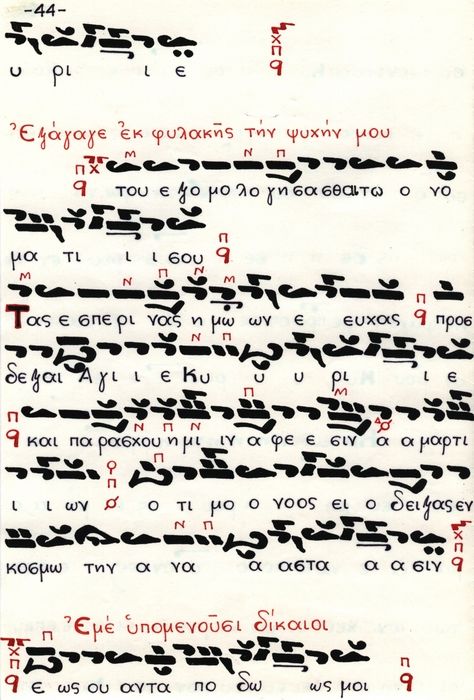 -44-
υ ρι ι ε
Ἐξάγαγε ἐκ φυλακῆς τὴν ψυχήν μου
του εξομολογησασθαιτω ο νο
μα τι ι ι σου
Τας εσπερι νας ημω ων ε ευχας προσ
δεξαι Αγι ι ε Κυ υ υ ρι ι ε
και παρασχου ημι ιν α φε ε σιν α α μαρτι
ι ι ων ο τι μο ο νοος ει ο δειξας εν
κοσμω την α να α αστα α α σιν
Ἐμὲ ὑπομενοῦσι δίκαιοι
ε ως ου αντα πο δω ως μοι